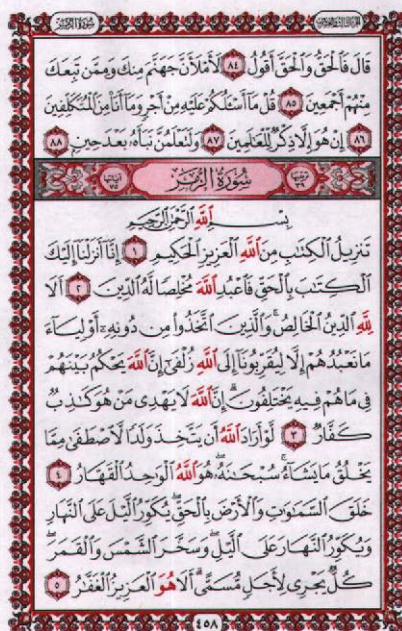 سورة الزمر
قَالَ فَالْحَقُّ وَالْحَقَّ أَقُولُ ٨٤ لَأَمْلَأَنَّ جَهَنَّمَ مِنكَ وَمِمَّن تَبِعَكَ
مِنْهُمْ أَجْمَعِينَ ٨٥ قُلْ مَا أَسْـَٔلُكُمْ عَلَيْهِ مِنْ أَجْرٍ وَمَا أَنَا مِنَ الْمُتَكَلِّفِينَ
٨٦ إِنْ هُوَ إِلَّا ذِكْرٌ لِّلْعَالَمِينَ ٨٧ وَلَتَعْلَمُنَّ نَبَأَهُ بَعْدَ حِينٍ ٨٨
ترتيبها ٣٩ سُورَةُ الزُّمَرِ آياتها ٧٥
بِسْمِ اللَّهِ الرَّحْمَٰنِ الرَّحِيمِ
تَنزِيلُ الْكِتَٰبِ مِنَ اللَّهِ الْعَزِيزِ الْحَكِيمِ ١ إِنَّا أَنزَلْنَا إِلَيْكَ
الْكِتَٰبَ بِالْحَقِّ فَاعْبُدِ اللَّهَ مُخْلِصًا لَّهُ الدِّينَ ٢ أَلَا
لِلَّهِ الدِّينُ الْخَالِصُ ۚ وَالَّذِينَ اتَّخَذُوا مِن دُونِهِ أَوْلِيَاءَ
مَا نَعْبُدُهُمْ إِلَّا لِيُقَرِّبُونَا إِلَى اللَّهِ زُلْفَىٰ إِنَّ اللَّهَ يَحْكُمُ بَيْنَهُمْ
فِي مَا هُمْ فِيهِ يَخْتَلِفُونَ ۗ إِنَّ اللَّهَ لَا يَهْدِي مَنْ هُوَ كَٰذِبٌ
كَفَّارٌ ٣ لَّوْ أَرَادَ اللَّهُ أَن يَتَّخِذَ وَلَدًا لَّاصْطَفَىٰ مِمَّا
يَخْلُقُ مَا يَشَاءُ ۚ سُبْحَٰنَهُ ۖ هُوَ اللَّهُ الْوَٰحِدُ الْقَهَّارُ ٤
خَلَقَ السَّمَٰوَٰتِ وَالْأَرْضَ بِالْحَقِّ ۖ يُكَوِّرُ الَّيْلَ عَلَى النَّهَارِ
وَيُكَوِّرُ النَّهَارَ عَلَى الَّيْلِ ۖ وَسَخَّرَ الشَّمْسَ وَالْقَمَرَ ۖ
كُلٌّ يَجْرِي لِأَجَلٍ مُّسَمًّى ۗ أَلَا هُوَ الْعَزِيزُ الْغَفَّٰرُ ٥
٤٥٨